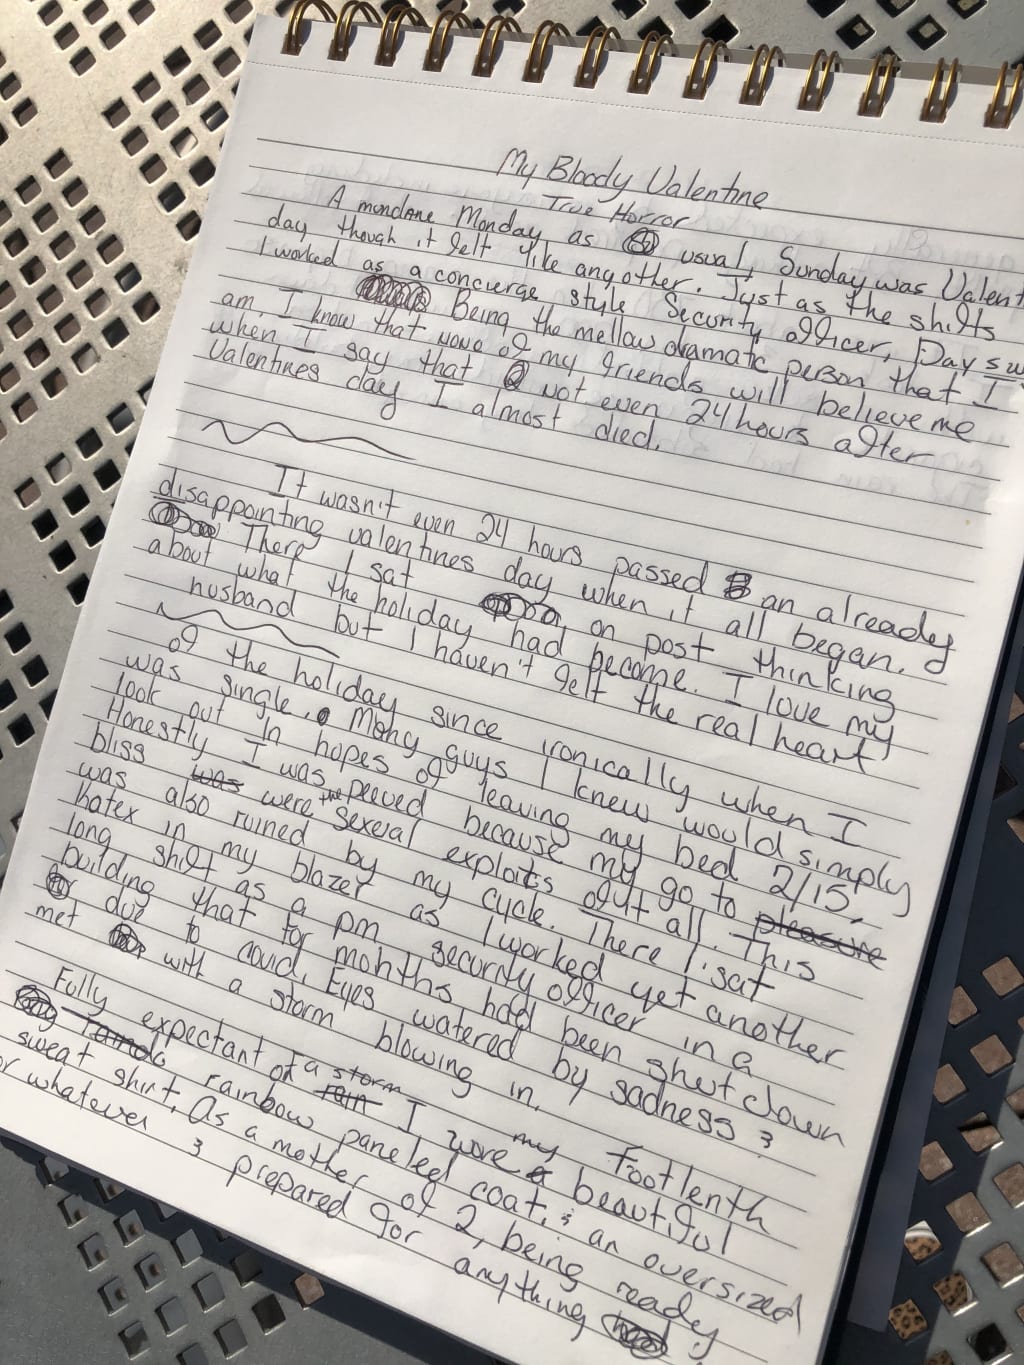 My Bloody Valentine
True Horror
A mondane Monday as usual, Sunday was Valent
day though it felt like any other. Just as the shifts
I worked as a concierge style Security officer, Day s
Being the mellow dramatic person that I
am, I know that none of my friends will believe me
when I say that not even 24 hours after
Valentines day I almost died.
It wasn't even 24 hours passed an already
disappointing valentines day when it all began.
There I sat on post thinking
about what the holiday had become. I love my
husband but I haven't felt the real heart
of the holiday since ironically when I
was single. Many guys I knew would simply
look out in hopes of leaving my bed 2/15.
Honestly I was peeved because my go to pleasure
bliss was were the sexual exploits of it all. This
was also ruined by my cycle. There I sat
in my blazer as I worked yet another
long shift as a pm security officer in a
building that for months had been shut down
due to covid. Eyes watered by sadness &
met with a storm blowing in.
Fully expectant of a storm rain I wore my a footlenth
rainbow paneled coat, & an oversized beautiful
sweat shirt. As a mother of 2, being ready
or whatever & prepared for anything